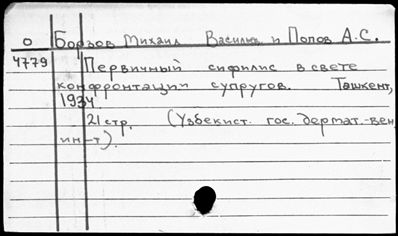 О Борзов Михаил Васильев и Попов А.С.
4779 Первичный сифилис в свете
конфронтации супругов. Ташкент,
1934.
21 стр. (Узбекист. гос. дермат.-вен.
ин-т).